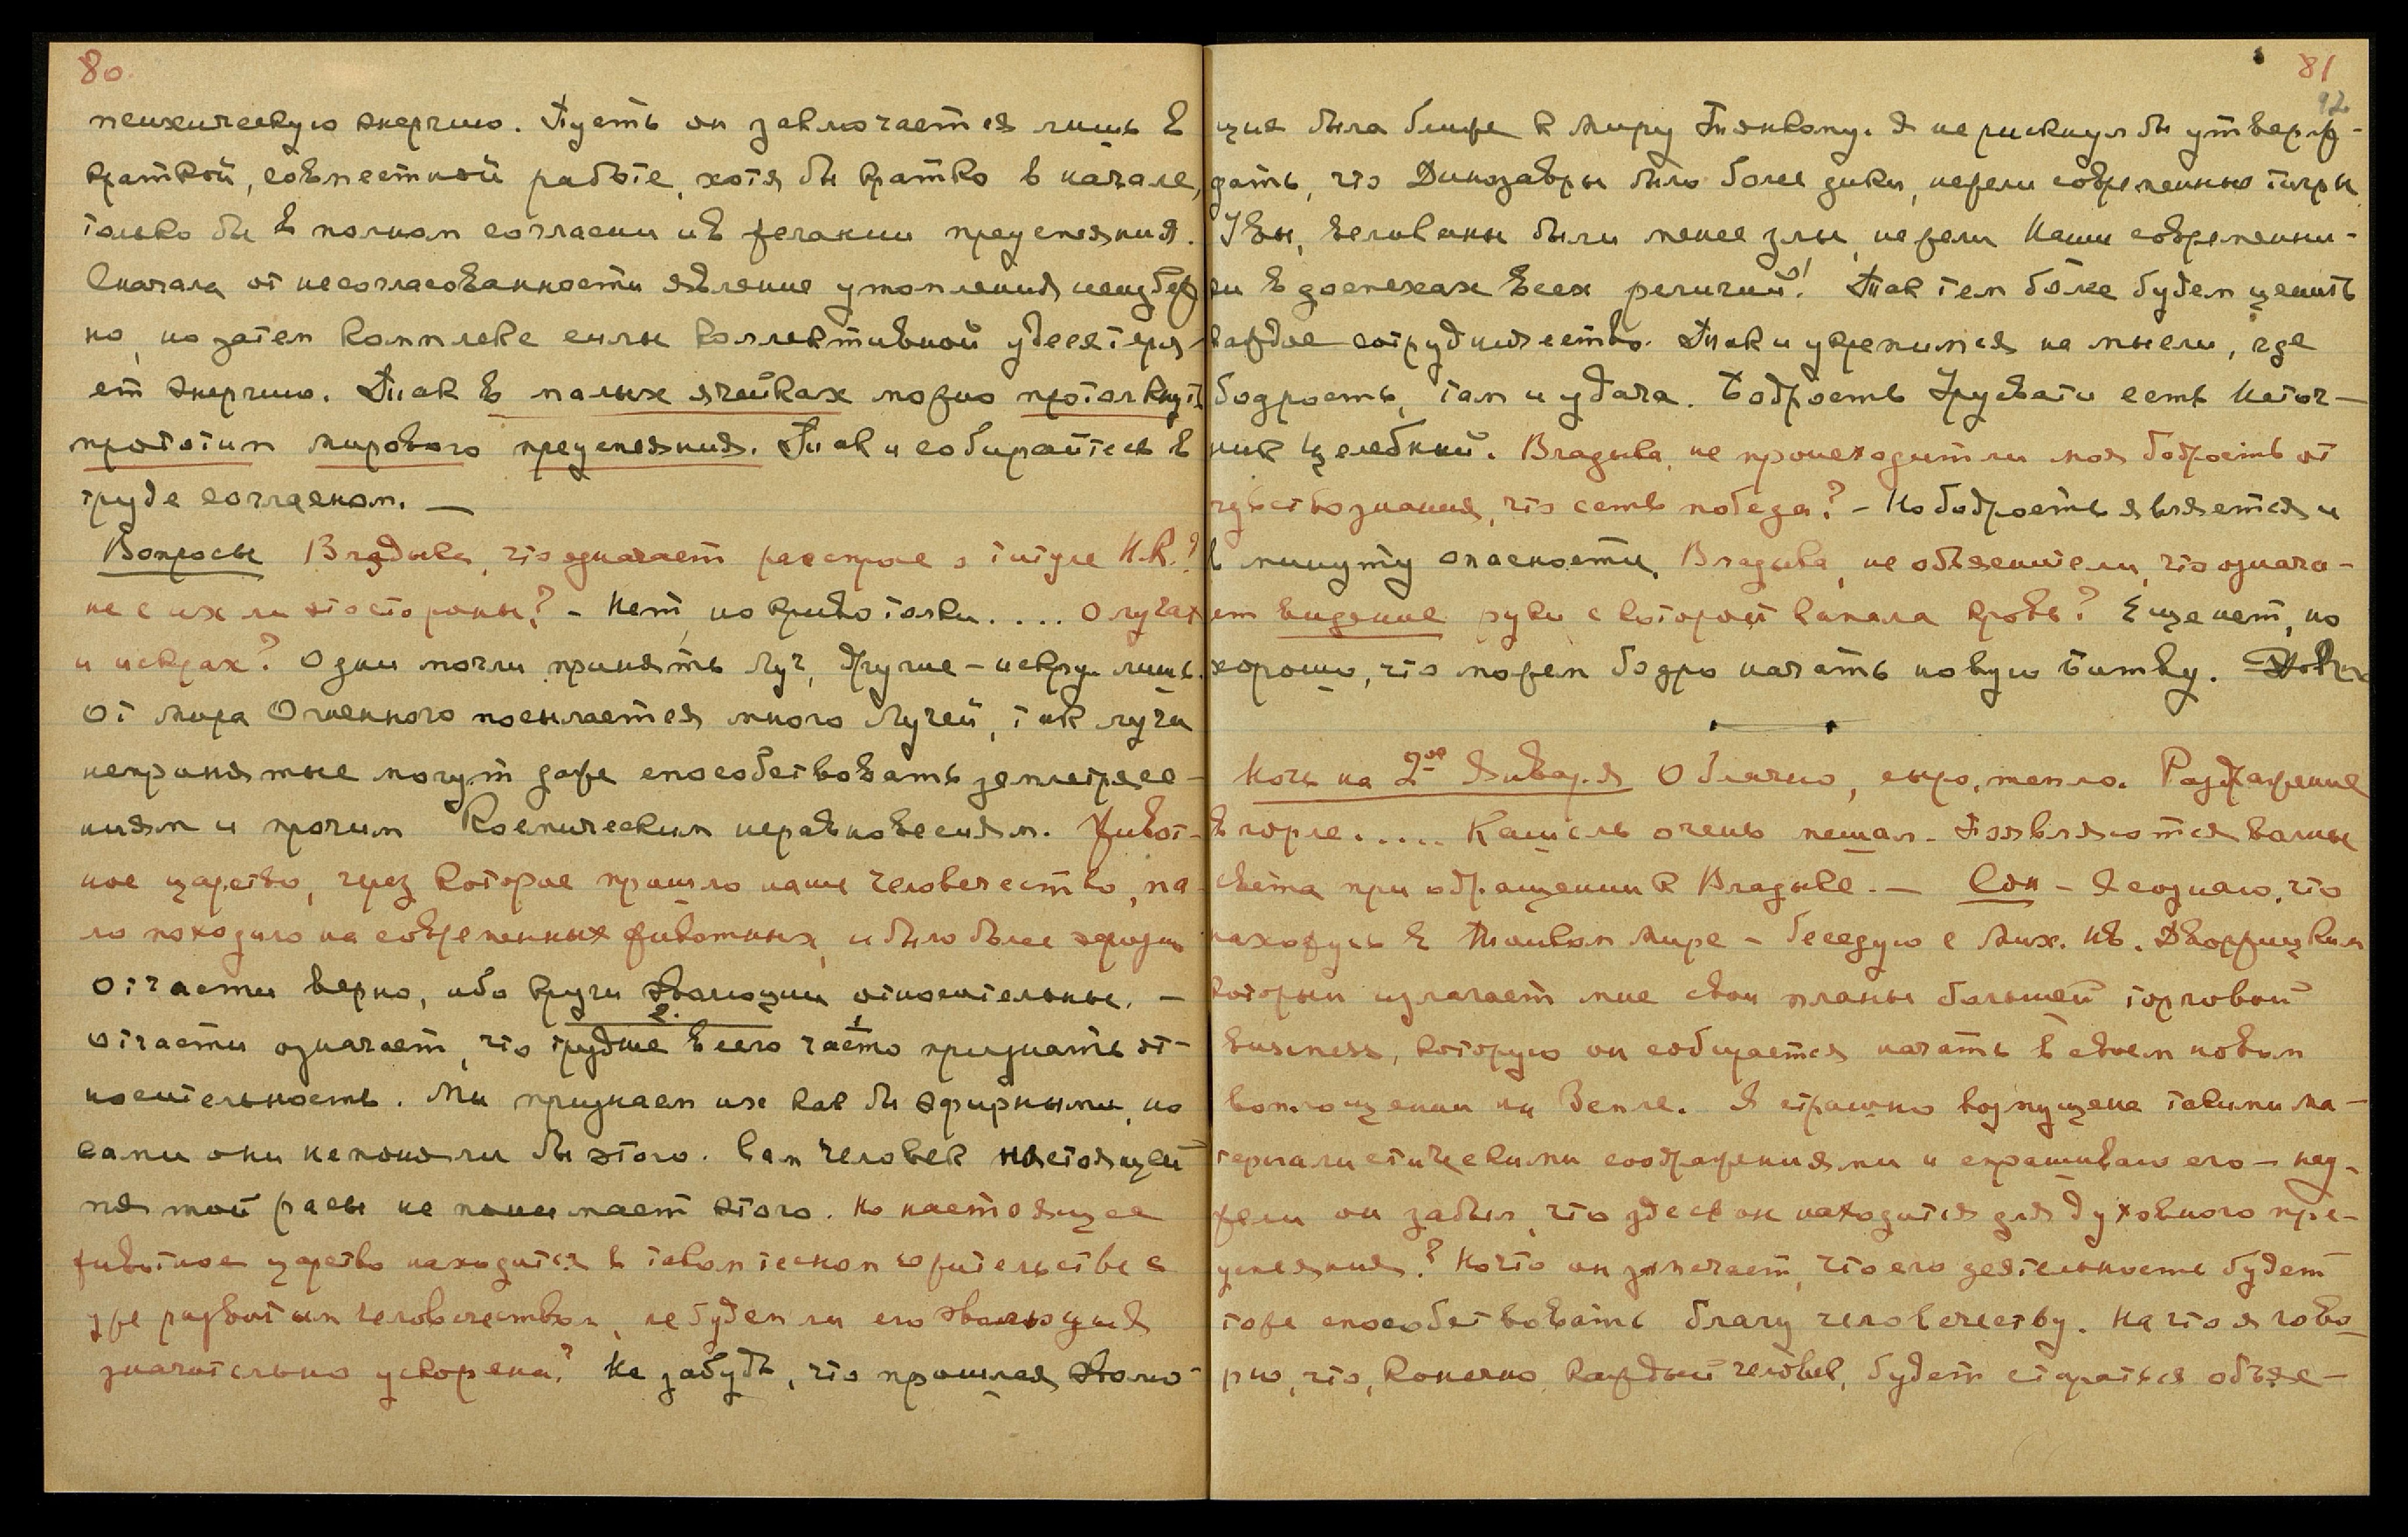 80.
психическую энергию. Пусть он заключается лишь в
краткой, совместной работе, хотя бы кратко в начале,
только бы в полном согласии и в желании преуспеяния.
Сначала от несогласованности явление утомления неизбеж
но, но затем комплекс силы коллективной удесятеря-
ет энергию. Так в малых ячейках можно протолкнуть
прототип мирового преуспеяния. Так и собирайтесь в
труде согласном. —
Вопросы Владыка, что означает расспрос о титуле Н.К.?
не с их ли это стороны? – Нет, но кривотолки.... О лучах
и искрах? Одни могли принять луч, другие – искру лишь.
От мира Огненного посылается много Лучей, так лучи
непринятые могут даже способствовать землетрясе-
ниям и прочим Космическим неравновесиям. Живот-
ное царство, через которое прошло наше человечество, ма-
ло походило на современных животных, и было более эфирн
Отчасти верно, ибо круги эволюции относительны. —
2. 1
отчасти означает, что труднее всего часто признать от-
носительность. Мы признаем их как бы эфирными, но
сами они не поняли бы этого. Сам человек настоящей
пятой расы не понимает этого. Но настоящее
животное царство находится в таком тесном сожительстве с
уже развитым человечеством, не будет ли его эволюция
значительно ускорена? Не забудь, что прошлая эволю-
81
92
ция была ближе к миру Тонкому. Я не рискнул бы утверж-
дать, что Динозавры были более дики, нежели современные тигры.
Увы, великаны были менее злы, нежели Наши современни-
ки в доспехах всех религий! Так тем более будем ценить
каждое сотрудничество. Так и укрепимся на мысли, где
бодрость, там и удача. Бодрость Урусвати есть Источ—
ник целебный. Владыка, не происходит ли моя бодрость от
чувствознания, что есть победа? – Но бодрость является и
в минуту опасности. Владыка, не объясните ли, что означа-
ет видение руки с которой капала кровь? Еще нет, но
хорошо, что можем бодро начать новую битву.
Ночь на 2ое Января Облачно, сыро, тепло. Раздражение
в горле..... Кашель очень мешал. Появляются волны
света при обращении к Владыке. — Сон – Я сознаю, что
нахожусь в Тонком Мире – беседую с Мих. Ив. Дворжицким
который излагает мне свои планы большей торговой
business, которую он собирается начать в своем новом
воплощении на Земле. Я страшно возмущена такими ма—
териалистическими соображениями и спрашиваю его – неу-
жели он забыл, что здесь он находится для духовного пре-
успеяния? На что он замечает, что его деятельность будет
тоже способствовать благу человечеству. На что я гово-
рю, что, конечно каждый человек, будет стараться объяс—